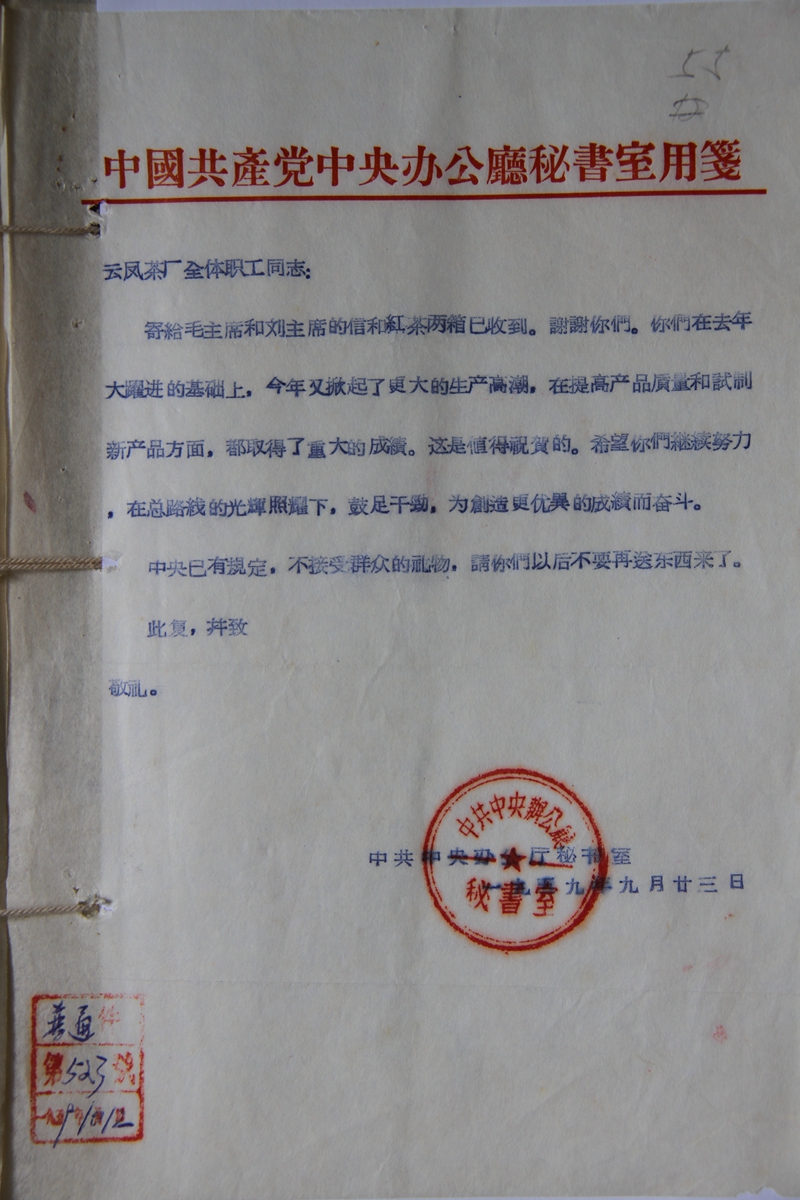 55
中國共產党中央办公廳秘書室用箋
云凤茶厂全体职工同志：
寄給毛主席和刘主席的信和紅茶两箱已收到。謝謝你們。你們在去年
大躍进的基础上，今年又掀起了更大的生产高潮，在提高产品质量和試制
新产品方面，都取得了重大的成績。这是值得祝賀的。希望你們継续努力
，在总路线的光輝照耀下，鼓足干勁，为創造更优異的成績而奋斗。
中央已有規定，不接受群众的礼物，請你們以后不要再送东西来了。
此复，幷致
敬礼。
中共中央办公厅秘书室
一九五九年九月廿三日
中共中央辦公廳
秘書室
普通件
第523號